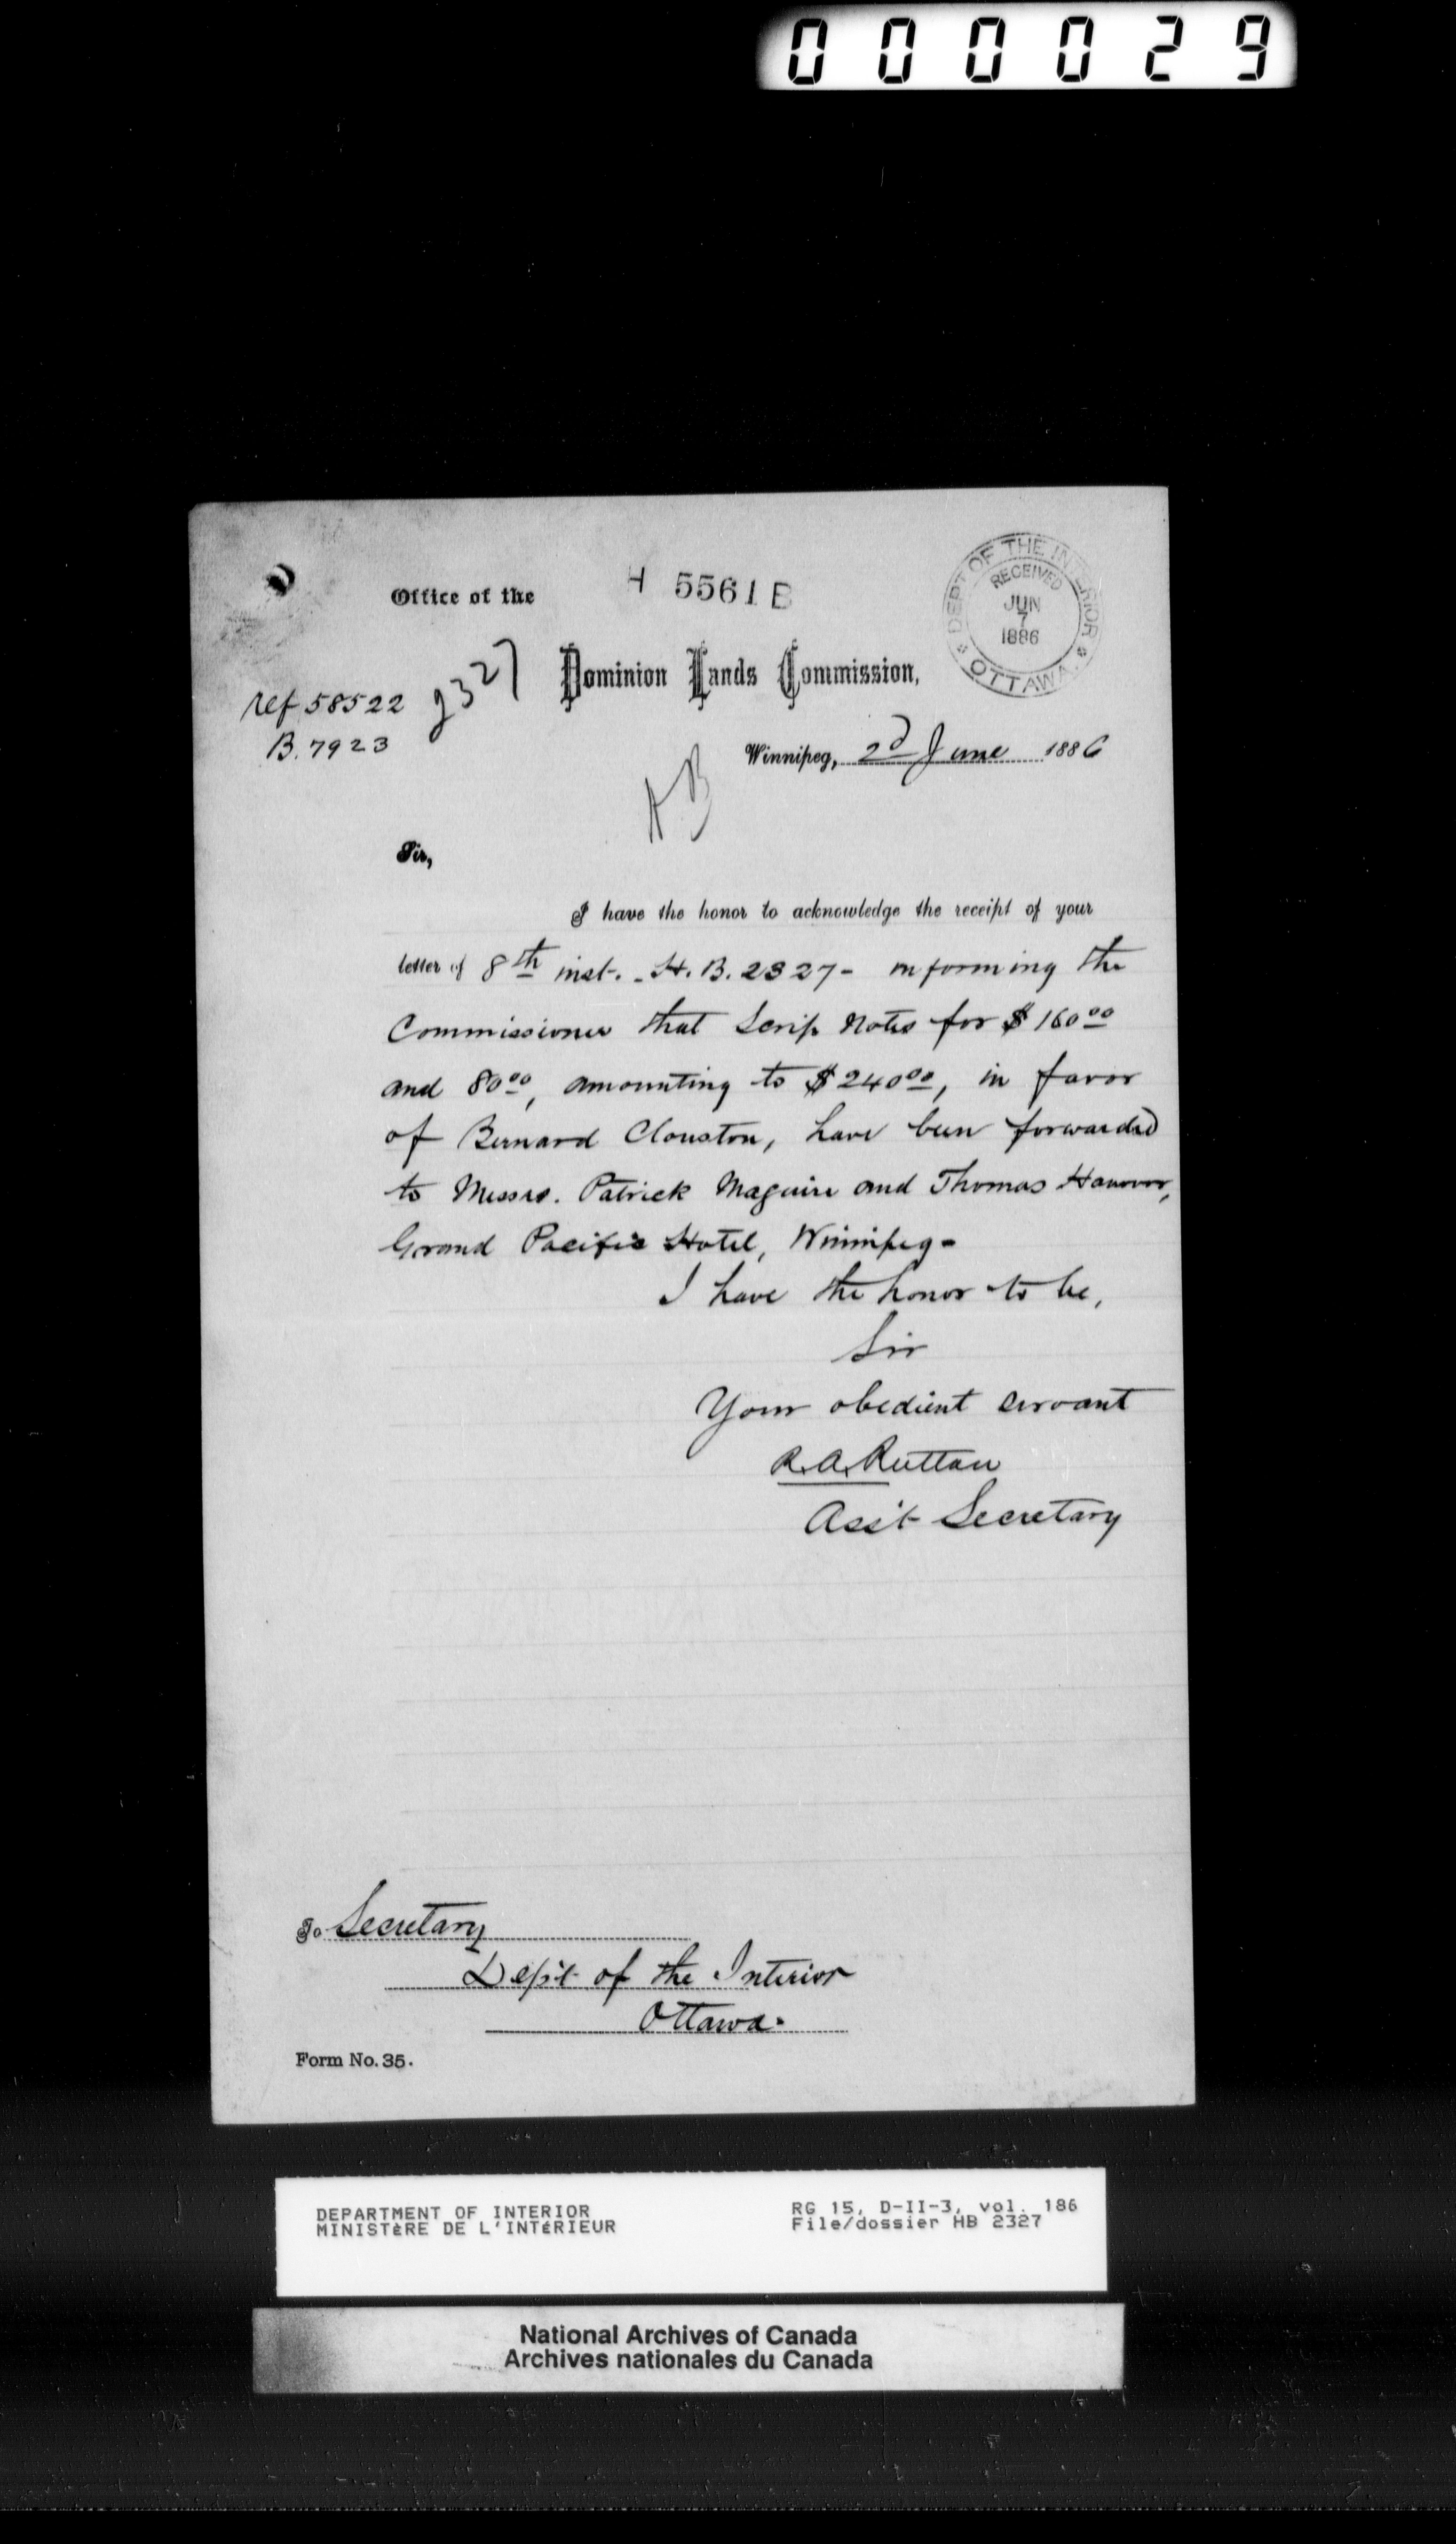 000029
Office of the
H 5561 B
DEPT OF THE INTERIOR
RECEIVED
JUN
7
1886
OTTAWA.
2327
Dominion Lands Commission,
ref 58522
B. 7923
Winnipeg, 2d June 1886
HB
Sir,
I have the honor to acknowledge the receipt of your
letter of 8th inst. - H. B. 2327 - informing the
Commissioner that Scrip Notes for $ 160 00
and 80 00, amounting to $ 240 00, in favor
of Bernard Clouston, have been forwarded
to Messrs. Patrick Maguire and Thomas Hanover,
Grand Pacific Hotel, Winnipeg -
I have the honor to be,
Sir
Your obedient servant
R. A. Ruttan
Ass't Secretary
To Secretary
Dep't of the Interior
Ottawa.
Form No. 35.
DEPARTMENT OF INTERIOR
MINISTÈRE DE L'INTÉRIEUR
RG 15, D-II-3, vol. 186
File/dossier HB 2327
National Archives of Canada
Archives nationales du Canada